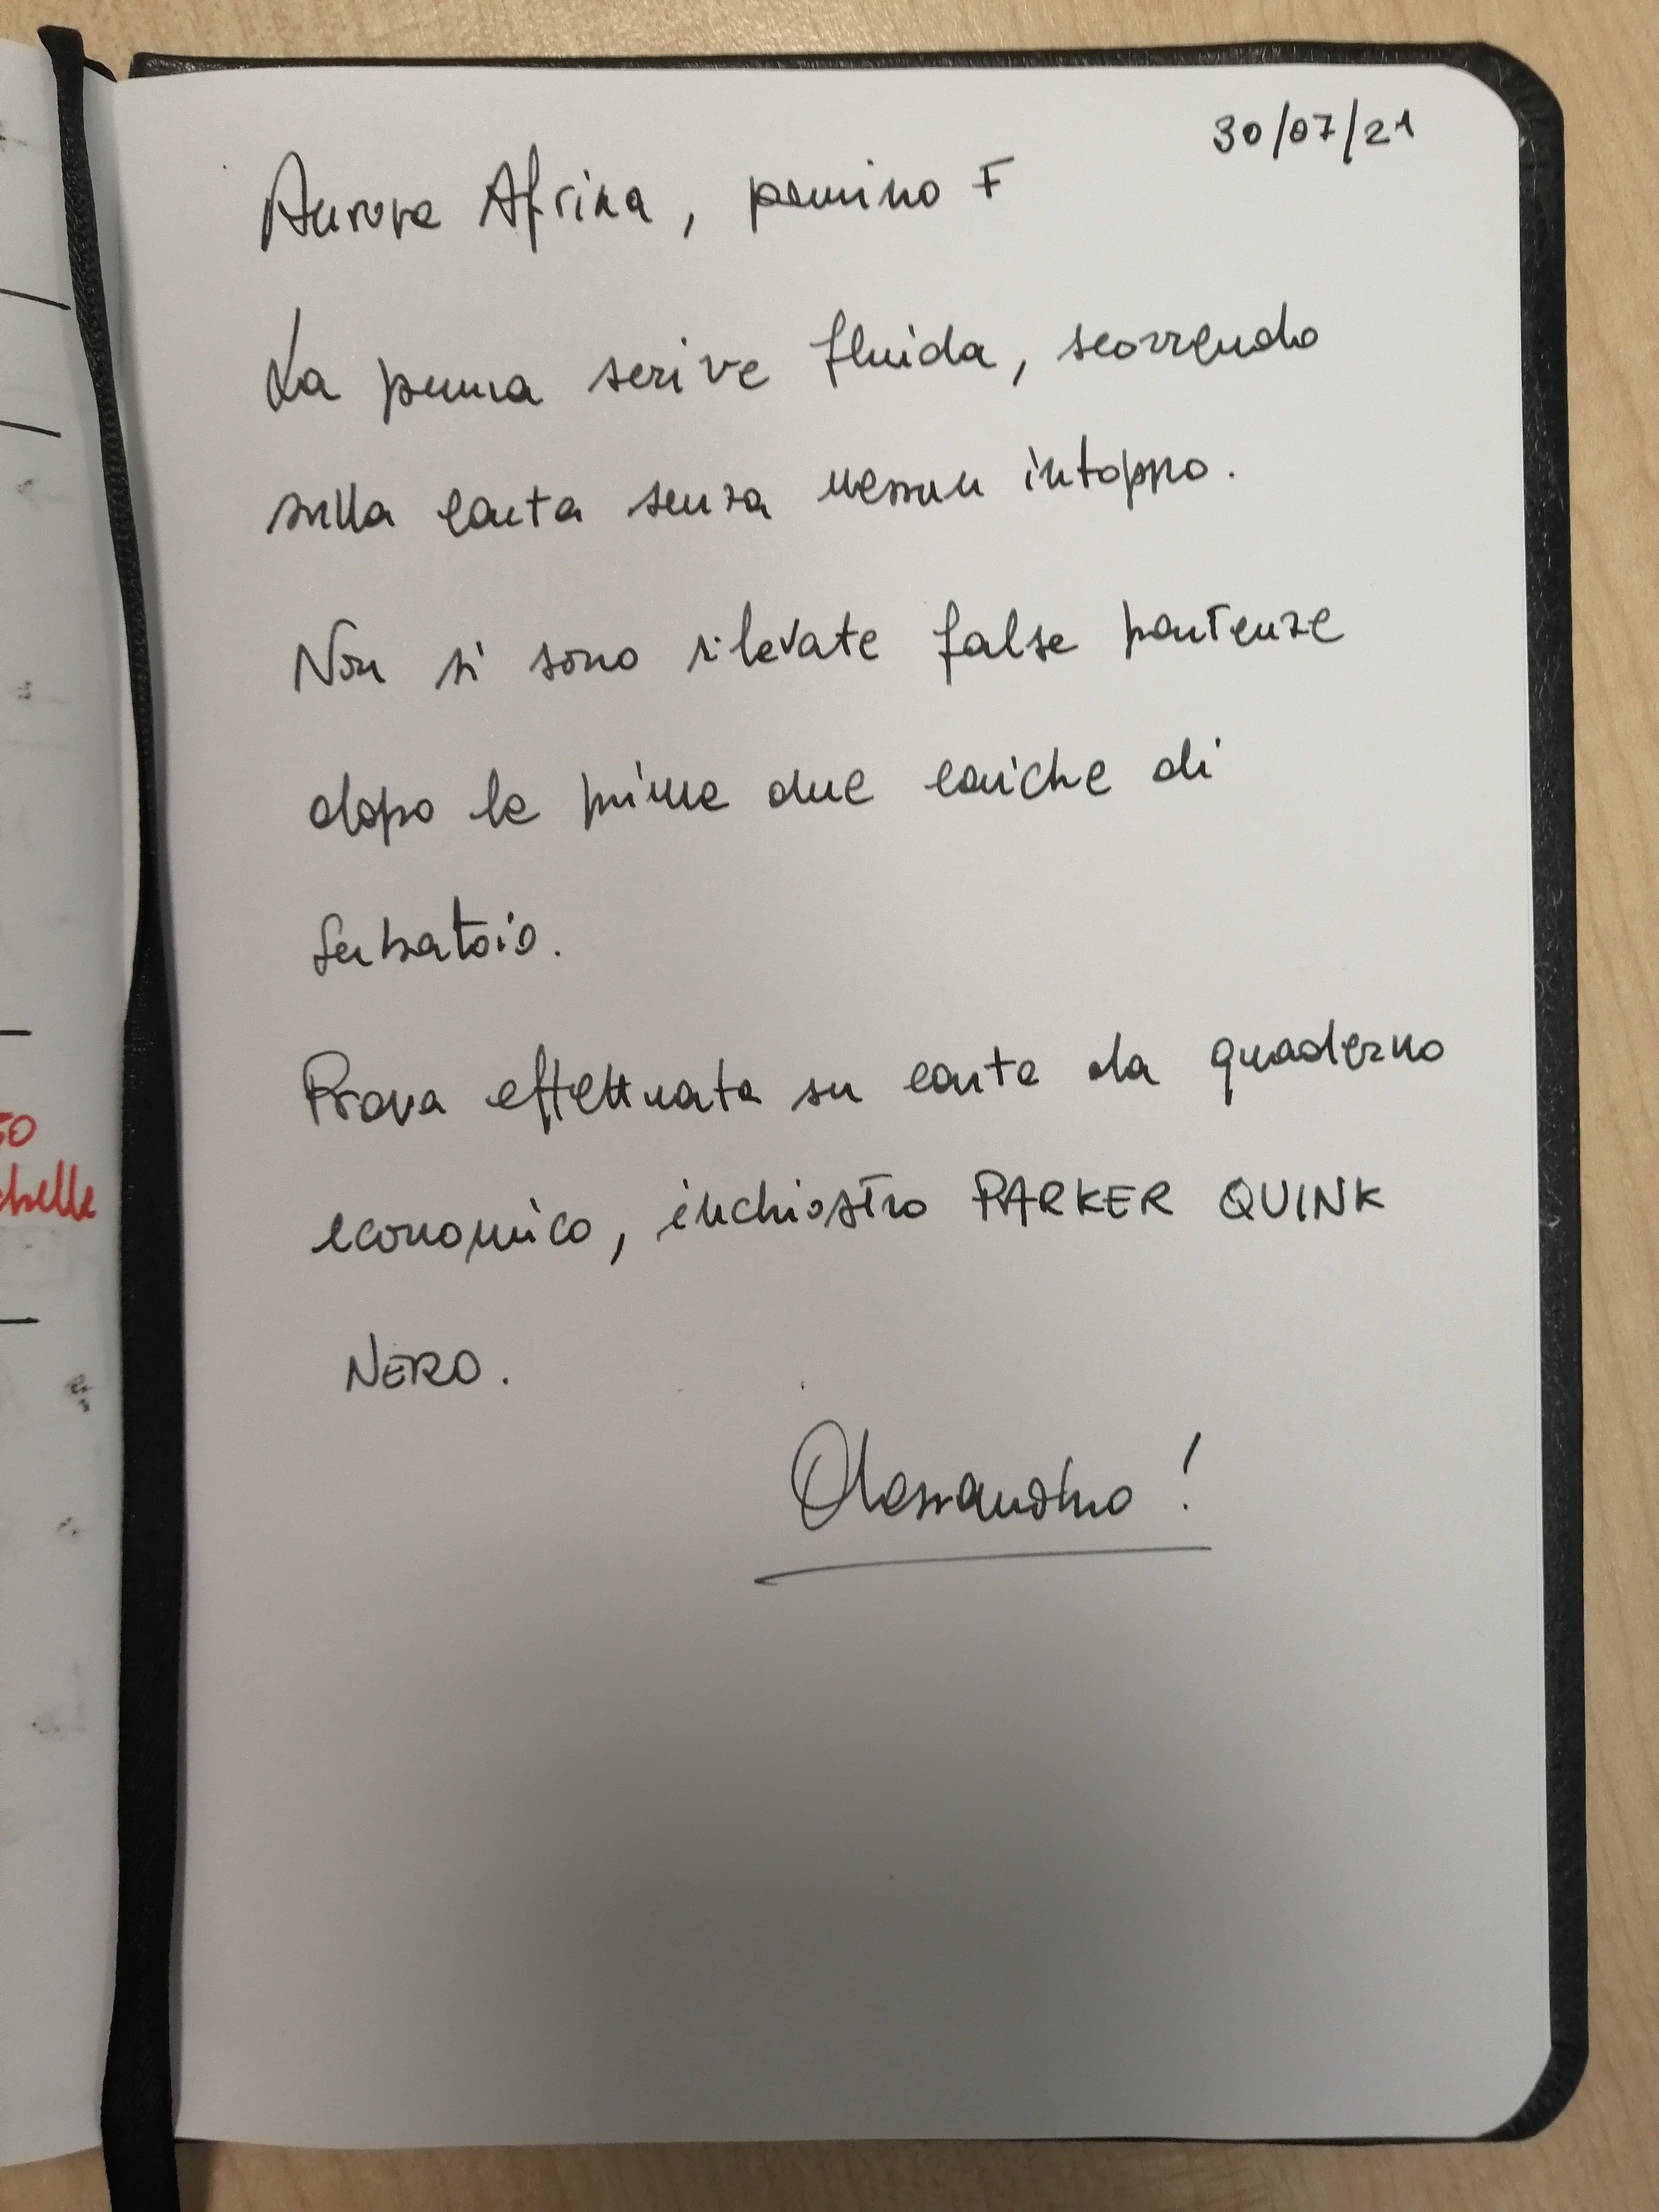 30/07/21
Aurora Afrika, pennino F
La penna scrive fluida, scorrendo
sulla carta senza nessun intoppo.
Non si sono rilevate false partenze
dopo le prime due cariche di
serbatoio.
Prova effettuata su carta da quaderno
economico, inchiostro PARKER QUINK
NERO.
Alessandro!